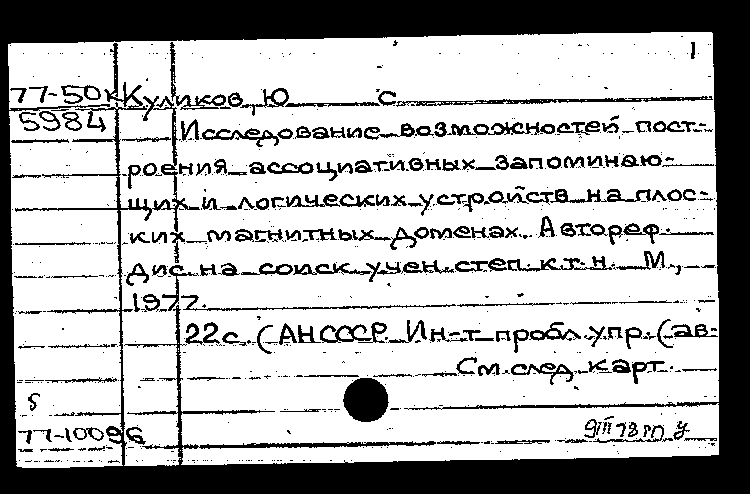 1
77-50к Куликов, Ю С
5984
Исследование возможностей пост-
роения ассоциативных запоминаю-
щих и логических устройств на плос-
ких магнитных доменах. Автореф.
дис. на соиск. учен. степ. к.т.н. М.,
1977.
22с. (АН СССР. Ин-т пробл. упр. (ав-
См. след. карт.
77-10096
9III 78